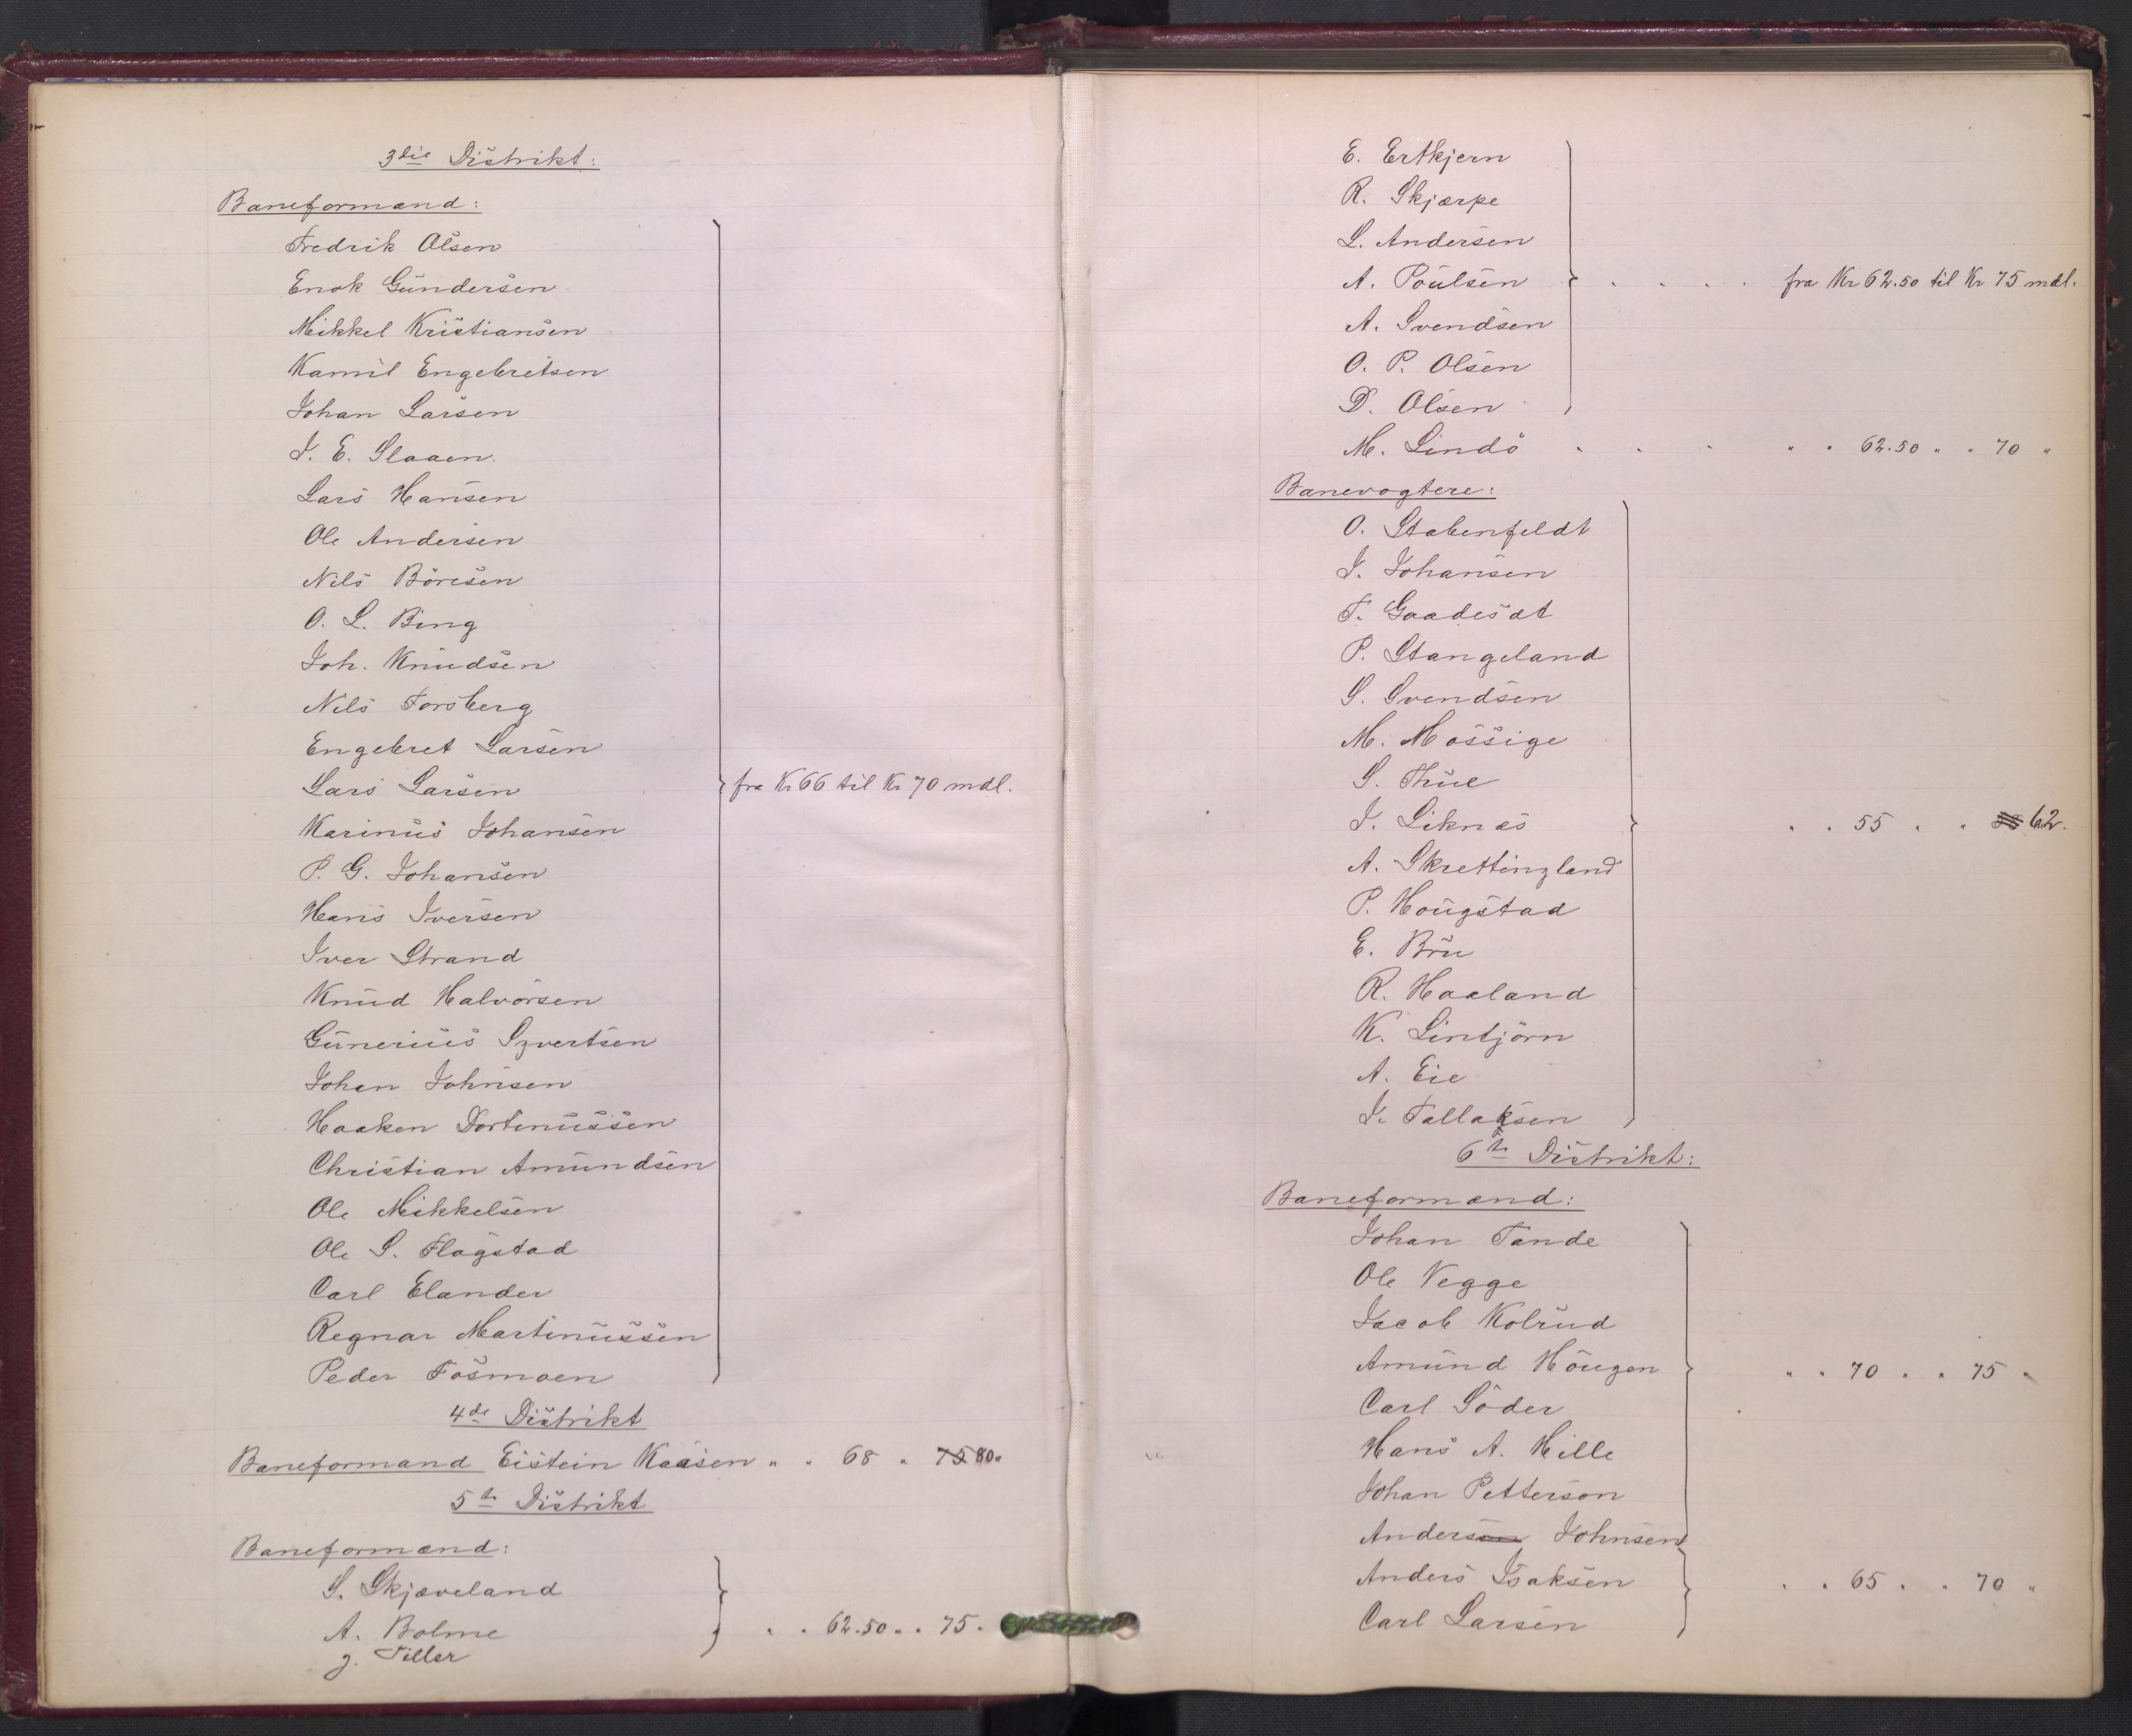 3die Distrikt:
Baneformænd:
Fredrik Olsen
Enok Gundersen
Mikkel Kristiansen
Kamil Engebretsen
Johan Larsen
J. E. Slaaen
Lars Hansen
Ole Andersen
Nils Böresen
O. L. Bing
Joh. Knudsen
Nils Forsberg
Engebret Larsen
Lars Larsen fra Kr 66 til Kr 70 mdl.
Karinus Johansen
P. G. Johansen
Hans Iversen
Iver Strand
Knud Halvorsen
Gunerius Syvertsen
Johan Johnsen
Haaken Dortenussen
Christian Amundsen
Ole Mikkelsen
Ole S. Flagstad
Carl Elander
Regnar Martinussen
Peder Fosmoen
4de Distrikt
Baneformand Eistein Kaasen " " 68 " 75 80 "
5te Distrikt
Baneformænd:
S. Skjæveland
A. Bolme " " 62.50 " " 75 "
J. Tiller
E. Ertkjern
R. Skjærpe
L. Andersen
A. Poulsen . . . . fra Kr 62.50 til Kr 75 mdl.
A. Svendsen
O. P. Olsen
D. Olsen
M. Lindö . . . " " 62.50 " " 70 "
Banevogtere:
O. Stabenfeldt
J. Johansen
T. Gaadesæt
P. Stangeland
S. Svendsen
M. Mossige
S. Thue
J. Liknæs " " 55 " " 62.
A. Skrettingland
P. Hougstad
E. Bru
R. Haaland
K. Lintjörn
A. Eie
J. Tallaksen
6te Distrikt:
Baneformænd:
Johan Tande
Ole Vegge
Jacob Kolrud
Amund Hougen " " 70 " " 75 "
Carl Söder
Hans A. Hille
Johan Petterson
Andersen Johnsen
Anders Isaksen " " 65 " " 70 "
Carl Larsen